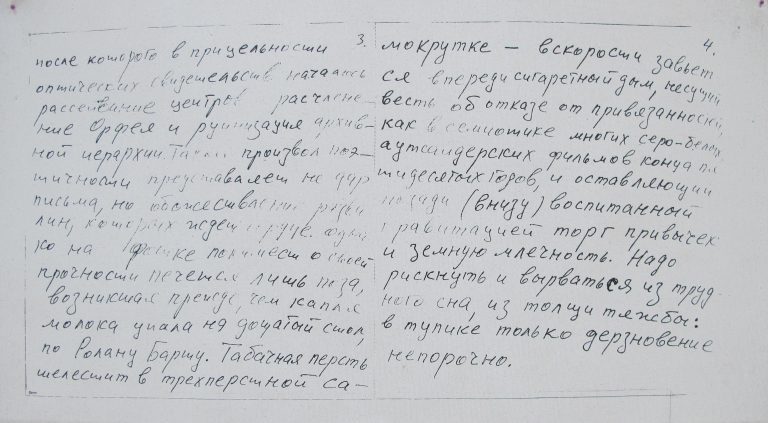 3.
после которого в прицельности
оптических свидетельств началось
рассеивание центров, расчлене-
ние Орфея и руинизация архив-
ной иерархии. Такой произвол поэ-
тичности представляет не дар
письма, но обожествление
лин, которых ждет
ко на понимест о своей
прочности печется лишь поза,
возникшая прежде, чем капля
молока упала на дощатый стол,
по Ролану Барту. Табачная персть
шелестит в трехперстной са-
4.
мокрутке – вскорости завьет
ся впереди сигаретный дым, несущий
весть об отказе от привязанностей,
как в семиотике многих серо-белых
аутсайдерских фильмов конца пя
тидесятых годов, и оставляющий
позади (внизу) воспитанный
гравитацией торг привычек
и земную млечность. Надо
рискнуть и вырваться из труд-
ного сна, из толщи тяжбы:
в тупике только дерзновение
непорочно.